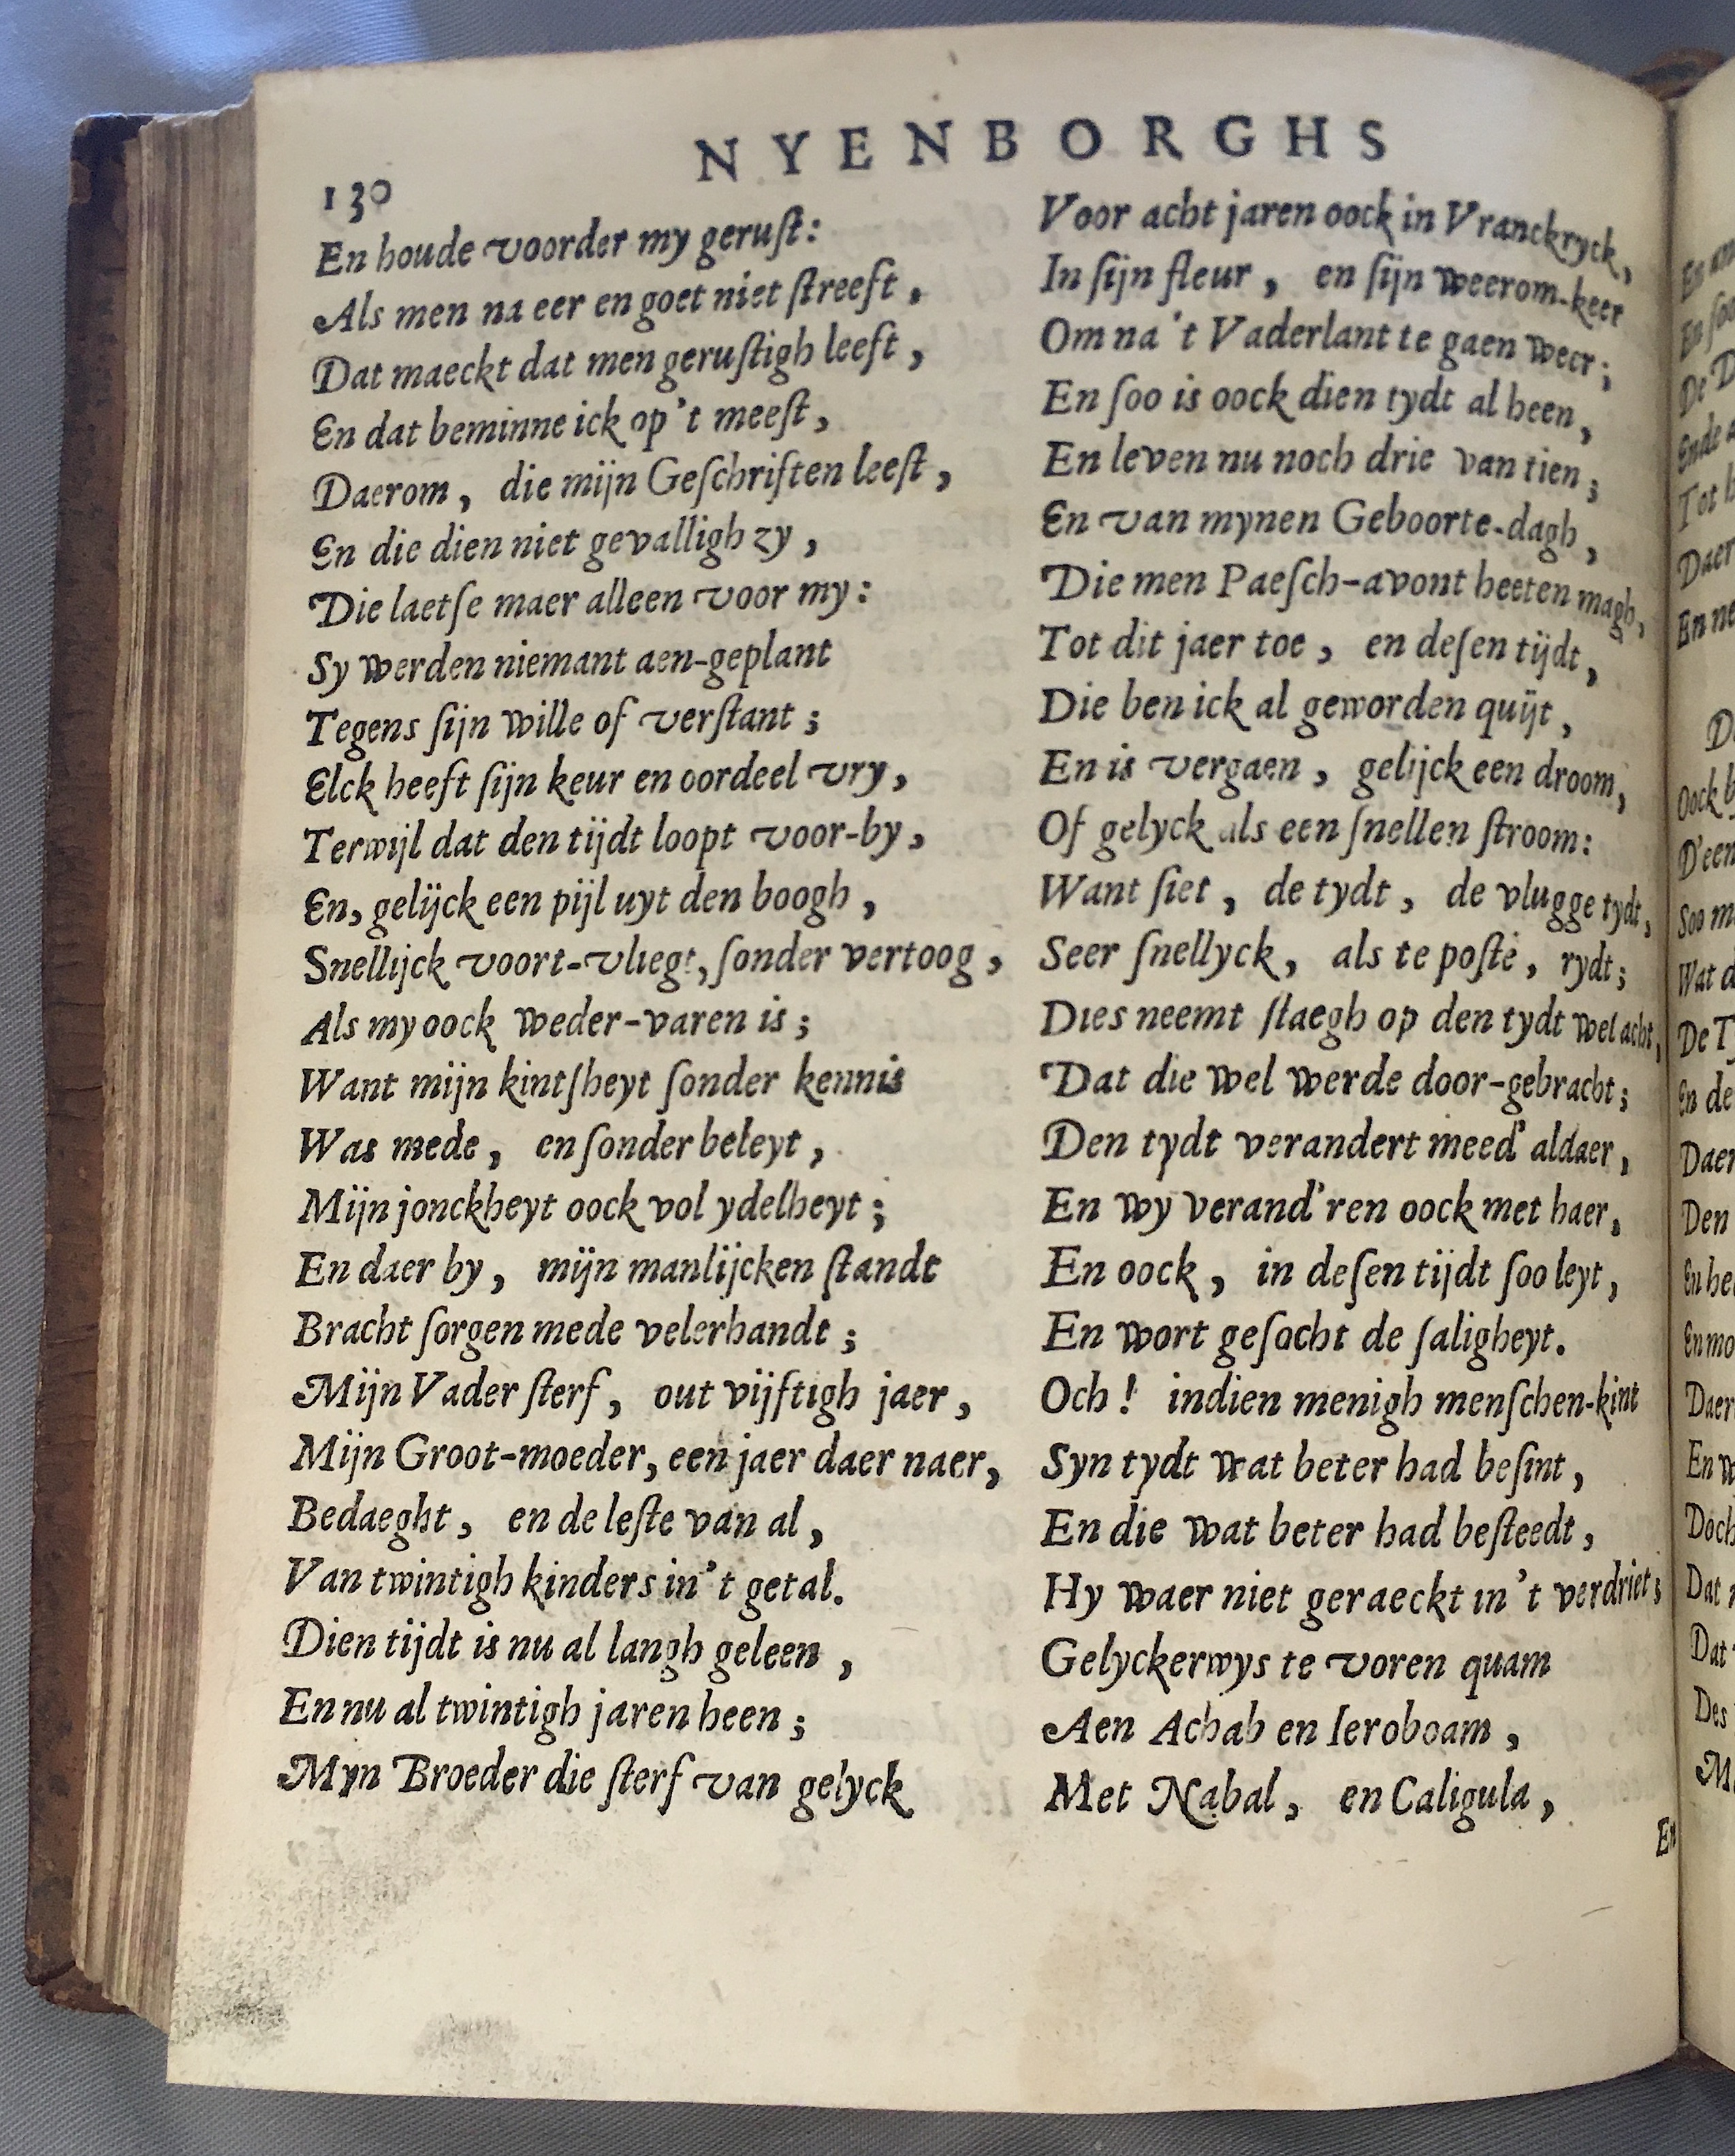 NYENBORGHS
130
En houde voorder my geruſt:
Als men na eer en goet niet ſtreeft,
Dat maeckt dat men geruſtigh leeft,
En dat beminne ick op't meeſt,
Daerom, die mijn Geſchriften leeſt,
En die dien niet gevalligh zy,
Die laetſe maer alleen voor my:
Sy werden niemant aen-geplant
Tegens ſijn wille of verſtant;
Elck heeft ſijn keur en oordeel vry,
Terwijl dat den tijdt loopt voor-by,
En, gelijck een pijl uyt den boogh,
Snellijck voort-vliegt, ſonder vertoog,
Als my oock weder-varen is;
Want mijn kintſheyt ſonder kennis
Was mede, en ſonder beleyt,
Mijn jonckheyt oock vol ydelheyt;
En daer by, mijn manlijcken ſtandt
Bracht ſorgen mede velerhandt;
Mijn Vader ſterf, out vijftigh jaer,
Mijn Groot-moeder, een jaer daer naer,
Bedaeght, en de leſte van al,
Van twintigh kinders in't getal.
Dien tijdt is nu al langh geleen,
En nu al twintigh jaren heen;
Myn Broeder die ſterf van gelyck
Voor acht jaren oock in Vranckryck,
In ſijn fleur, en ſijn weerom-keer
Om na't Vaderlant te gaen weer;
En ſoo is oock dien tydt al heen,
En leven nu noch drie van tien;
En van mynen Geboorte-dagh,
Die men Paeſch-avont heeten magh,
Tot dit jaer toe, en deſen tijdt,
Die ben ick al geworden quijt,
En is vergaen, gelijck een droom,
Of gelyck als een ſnellen ſtroom:
Want ſiet, de tydt, de vlugge tydt,
Seer ſnellyck, als te poſte, rydt;
Dies neemt ſtaegh op den tydt wel acht,
Dat die wel werde door-gebracht;
Den tydt verandert meed' aldaer,
En wy verand'ren oock met haer,
En oock, in deſen tijdt ſoo leyt,
En wort geſocht de ſaligheyt.
Och! indien menigh menſchen-kint
Syn tydt wat beter had beſint,
En die wat beter had beſteedt,
Hy waer niet geraeckt in't verdriet;
Gelyckerwys te voren quam
Aen Achab en Ieroboam,
Met Nabal, en Caligula,
En